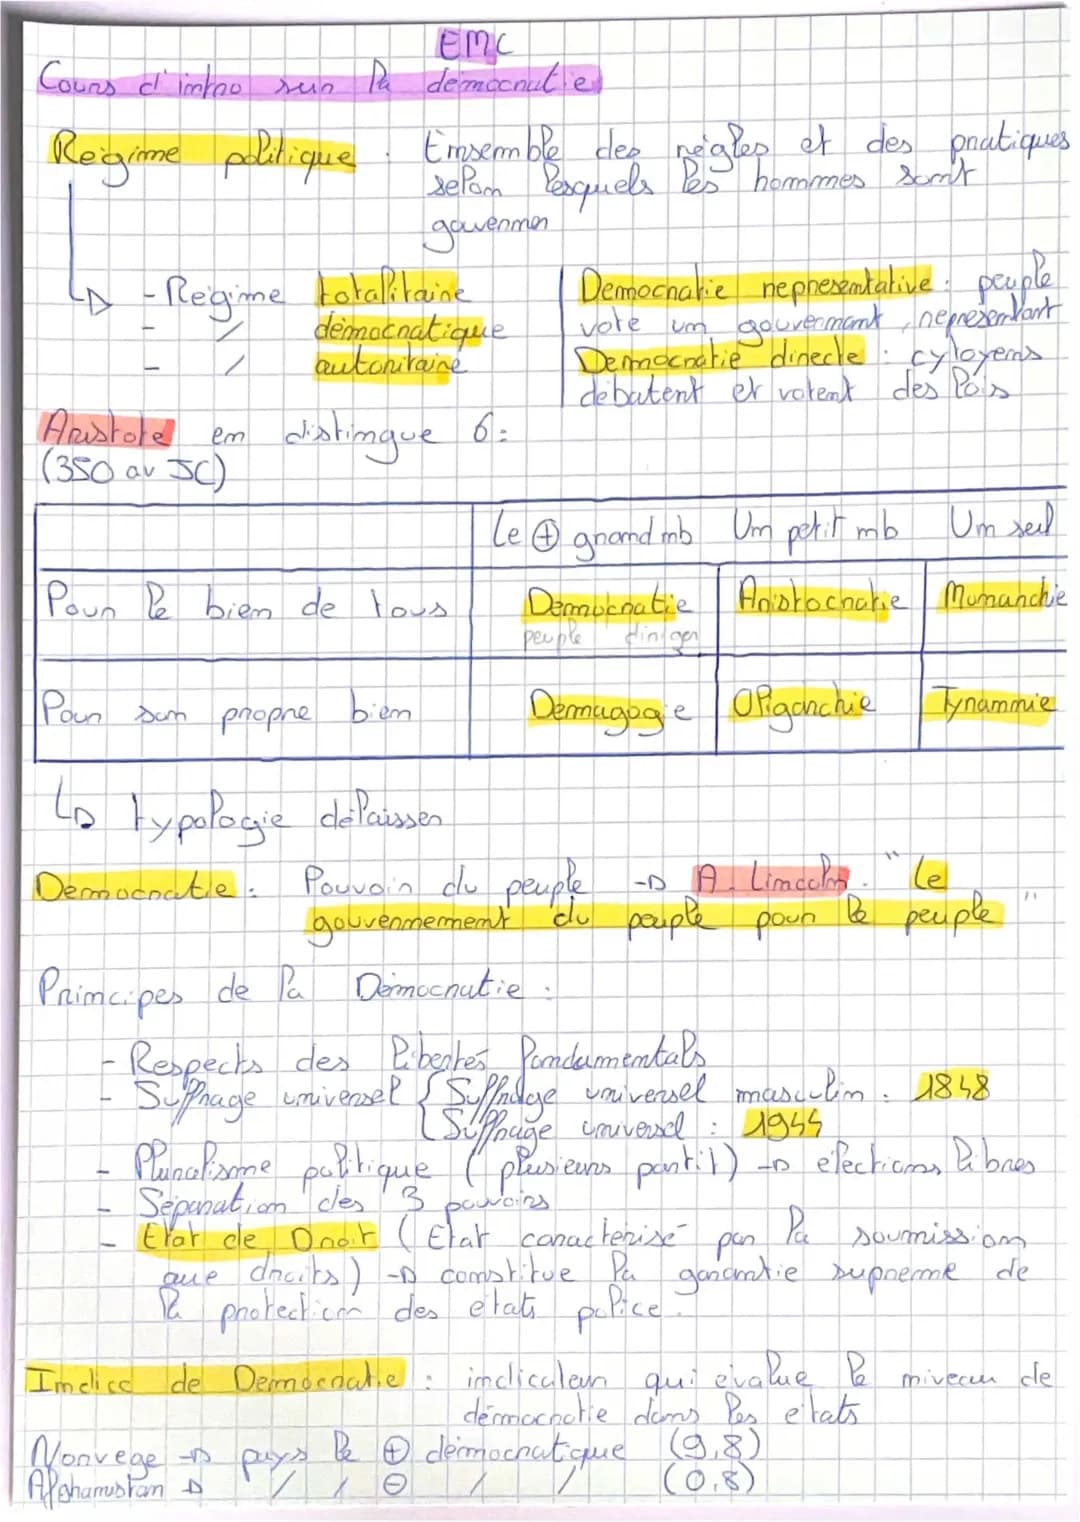 EMC
Cours d'intro sur la démocratie
Régime politique : Ensemble des règles et des pratiques
selon lesquels les hommes sont
gouverner
↳ - Régime totalitaire
- // démocratique
- // autoritaire
Democratie representative : peuple
vote un gouvernant, representant
Democratie directe : cytoyens
débatent et votent des lois
Aristote en distingue 6 :
(350 av JC)
Le ⊕ grand nb Un petit nb Un seul
Pour le bien de tous Democratie Aristocratie Monarchie
peuple diriger
Pour son propre bien Démagogie Oligarchie Tyrannie
↳ typologie délaisser
Democratie : Pouvoir du peuple → A. Lincoln : "Le
gouvernement du peuple pour le peuple"
Principes de la Démocratie :
- Respects des libertés fondamentals
- Suffrage universel { Suffrage universel masculin : 1848
Suffrage universel : 1944
- Pluralisme politique (plusieurs partit) → élections libres
- Séparation des 3 pouvoirs
- Etat de Droit (Etat caractérisé par la soumission
que droits) → constitue la garantie supreme de
la protection des etats police.
Indice de Democratie : indicateur qui évalue le niveau de
démocratie dans les etats
Norvege → pays le ⊕ démocratique (9,8)
Afghanustan → / / ⊖ / / (0,8)